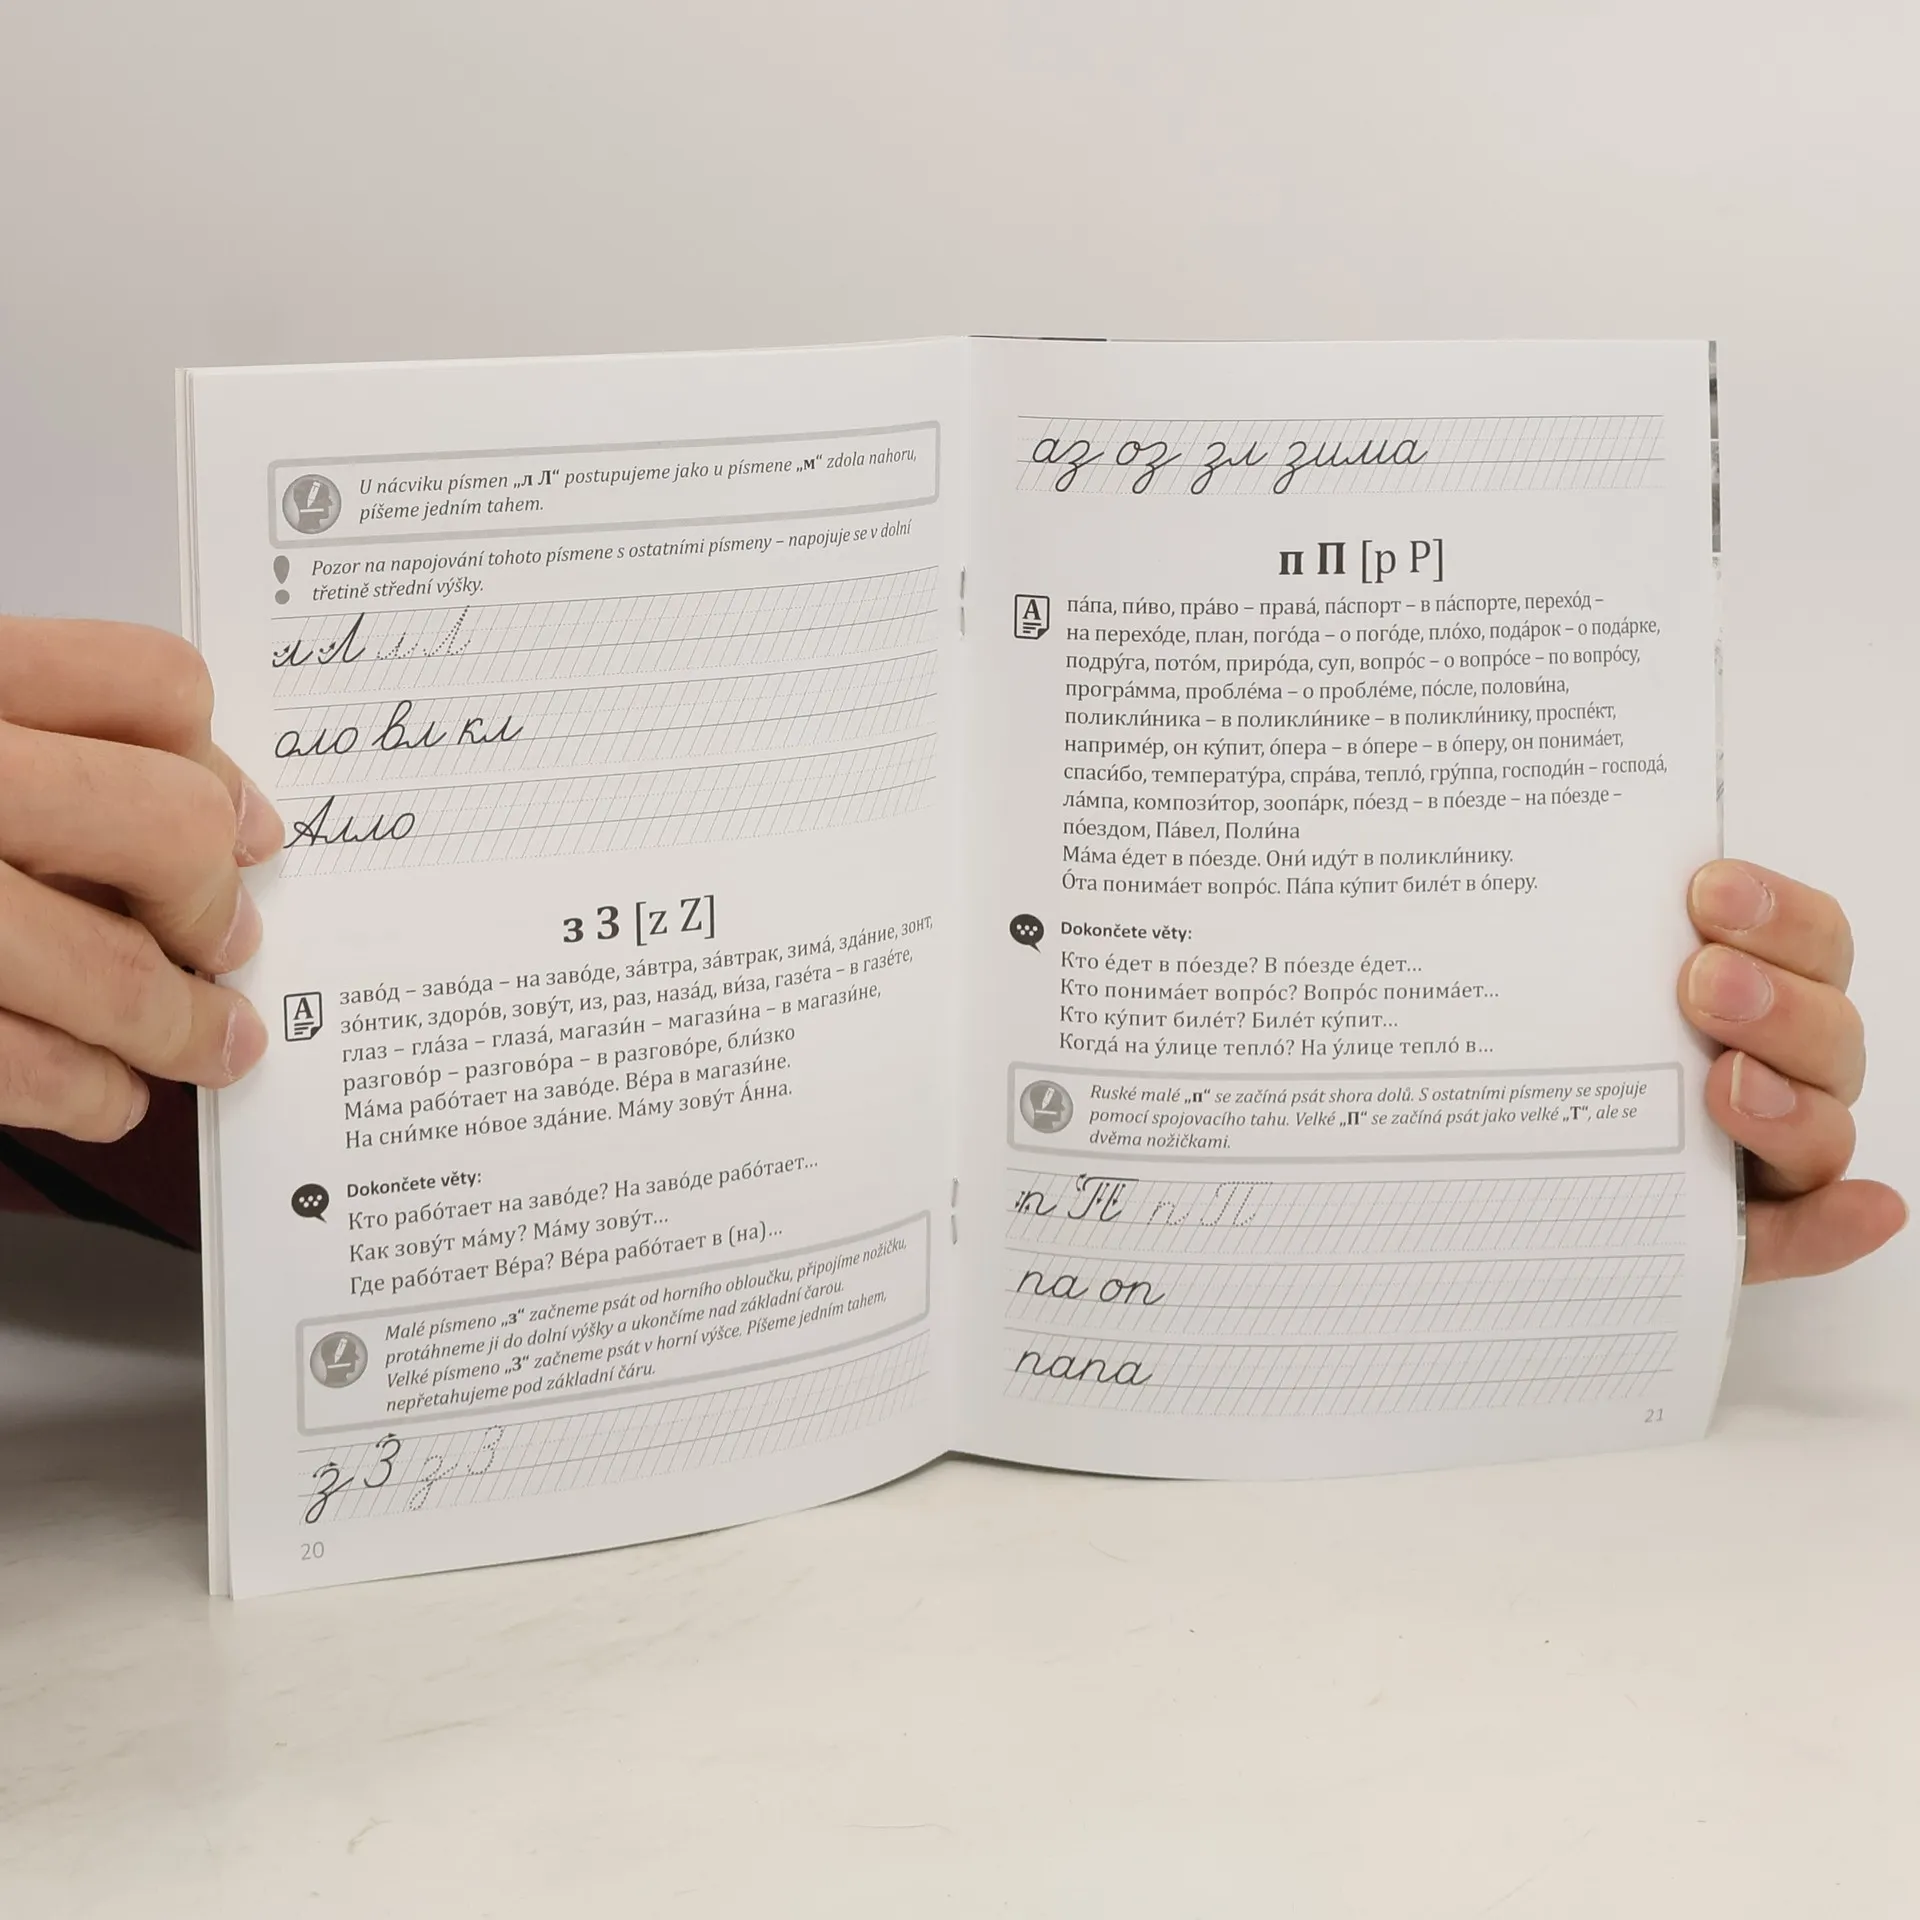 U nácviku písmen „л Л“ postupujeme jako u písmene „м“ zdola nahoru,
píšeme jedním tahem.
Pozor na napojování tohoto písmene s ostatními písmeny – napojuje se v dolní
třetině střední výšky.
л Л л Л
оло вл кл
Алло
з З [z Z]
заво́д – заво́да – на заво́де, за́втра, за́втрак, зима́, зда́ние, зонт,
зо́нтик, здоро́в, зову́т, из, раз, наза́д, ви́за, газе́та – в газе́те,
глаз – гла́за – глаза́, магази́н – магази́на – в магази́не,
разгово́р – разгово́ра – в разгово́ре, бли́зко
Ма́ма рабо́тает на заво́де. Ве́ра в магази́не.
На сни́мке но́вое зда́ние. Ма́му зову́т А́нна.
Dokončete věty:
Кто рабо́тает на заво́де? На заво́де рабо́тает...
Как зову́т ма́му? Ма́му зову́т...
Где рабо́тает Ве́ра? Ве́ра рабо́тает в (на)...
Malé písmeno „з“ začneme psát od horního obloučku, připojíme nožičku,
protáhneme ji do dolní výšky a ukončíme nad základní čarou.
Velké písmeno „З“ začneme psát v horní výšce. Píšeme jedním tahem,
nepřetahujeme pod základní čáru.
з З з З
20
аз оз зл зима
п П [p P]
па́па, пи́во, пра́во – права́, па́спорт – в па́спорте, перехо́д –
на перехо́де, план, пого́да – о пого́де, пло́хо, пода́рок – о пода́рке,
подру́га, пото́м, приро́да, суп, вопро́с – о вопро́се – по вопро́су,
програ́мма, пробле́ма – о пробле́ме, по́сле, полови́на,
поликли́ника – в поликли́нике – в поликли́нику, проспе́кт,
наприме́р, он ку́пит, о́пера – в о́пере – в о́перу, он понима́ет,
спаси́бо, температу́ра, спра́ва, тепло́, гру́ппа, господи́н – господа́,
ла́мпа, компози́тор, зоопа́рк, по́езд – в по́езде – на по́езде –
по́ездом, Па́вел, Поли́на
Ма́ма е́дет в по́езде. Они́ иду́т в поликли́нику.
О́та понима́ет вопро́с. Па́па ку́пит биле́т в о́перу.
Dokončete věty:
Кто е́дет в по́езде? В по́езде е́дет...
Кто понима́ет вопро́с? Вопро́с понима́ет...
Кто ку́пит биле́т? Биле́т ку́пит...
Когда́ на у́лице тепло́? На у́лице тепло́ в...
Ruské malé „п“ se začíná psát shora dolů. S ostatními písmeny se spojuje
pomocí spojovacího tahu. Velké „П“ se začíná psát jako velké „Т“, ale se
dvěma nožičkami.
п П п П
па оп
папа
21